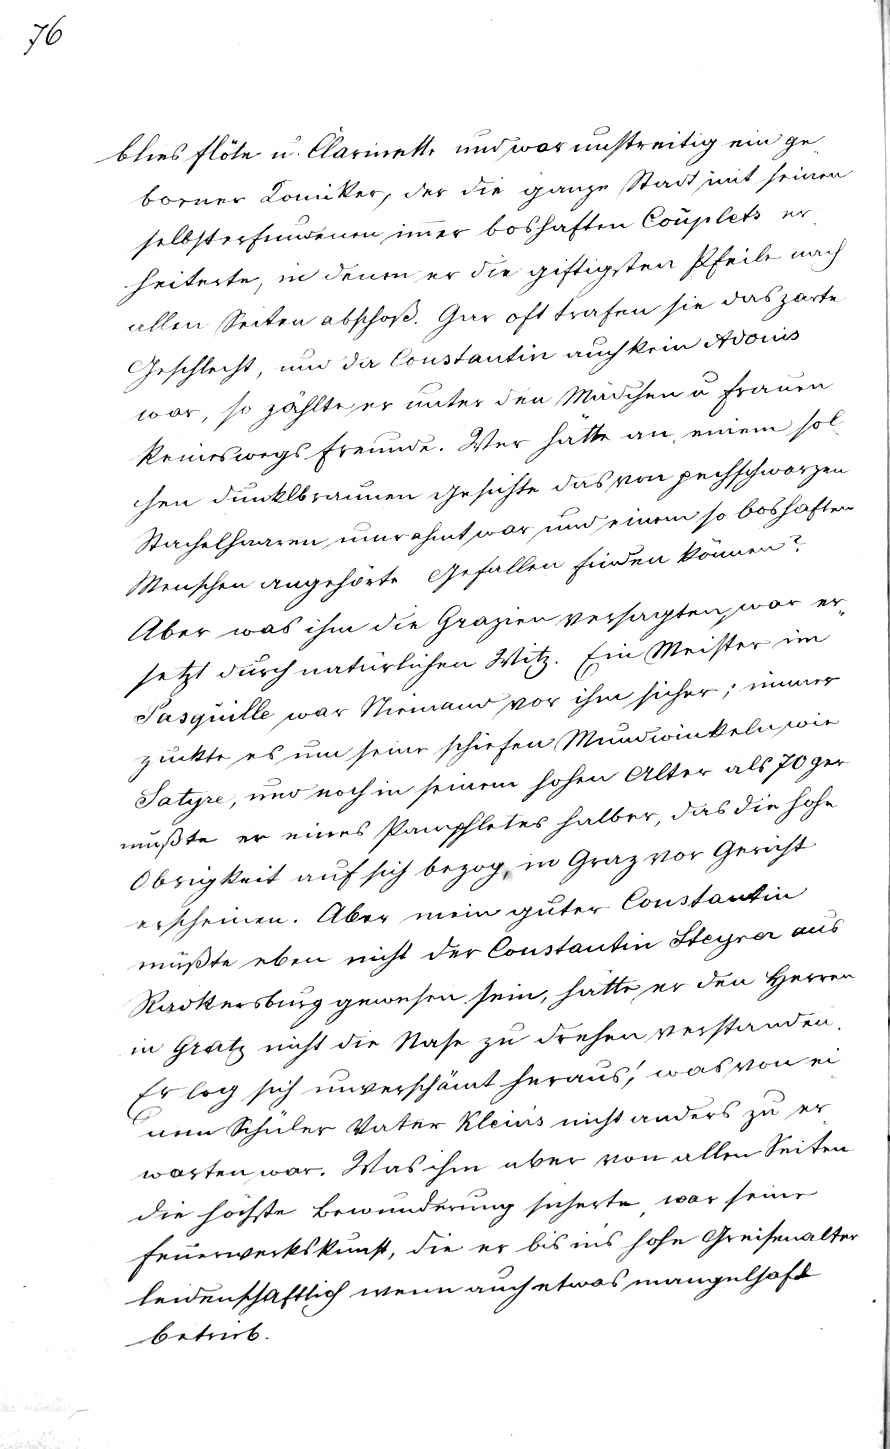 76
blies Flöte u. Clarinette und war unstreitig ein ge
borner Komiker, der die ganze Stadt mit seinen
selbsterfundenen immer boshaften Couplets er
heiterte, in denen er die giftigsten Pfeile nach
allen Seiten abschoß. Gar oft trafen sie das zarte
Geschlecht, und da Constantin auch kein Adonis
war, so zählte er unter den Mädchen u Frauen
keineswegs Freunde. Wer hätte an einem sol
chen dunklbraunen Gesichte das von pechschwarzen
Stachelhaaren umrahmt war und einem so boshaften
Menschen angehörte Gefallen finden können?
Aber was ihm die Grazien versagten, war er„
setzt durch natürlichen Witz. Ein Meister im
Pasquille war Niemand vor ihm sicher; immer
zuckte es um seine schiefen Mundwinkeln wie
Satyre, und noch in seinem hohen Alter als 70ger
mußte er eines Pamphletes halber, das die hohe
Obrigkeit auf sich bezog, in Graz vor Gericht
erscheinen. Aber mein guter Constantin
müßte eben nicht der Constantin Steyrer aus
Radkersburg gewesen sein, hätte er den Herren
in Gratz nicht die Nase zu drehen verstanden.
Er log sich unverschämt heraus, was von ei
nem Schüler Vater Kleins nicht anders zu er
warten war. Was ihm aber von allen Seiten
die höchste Bewunderung sicherte, war seine
Feuerwerkskunst, die er bis in's hohe Greisenalter
leidenschaftlich wenn auch etwas mangelhaft
betrieb.